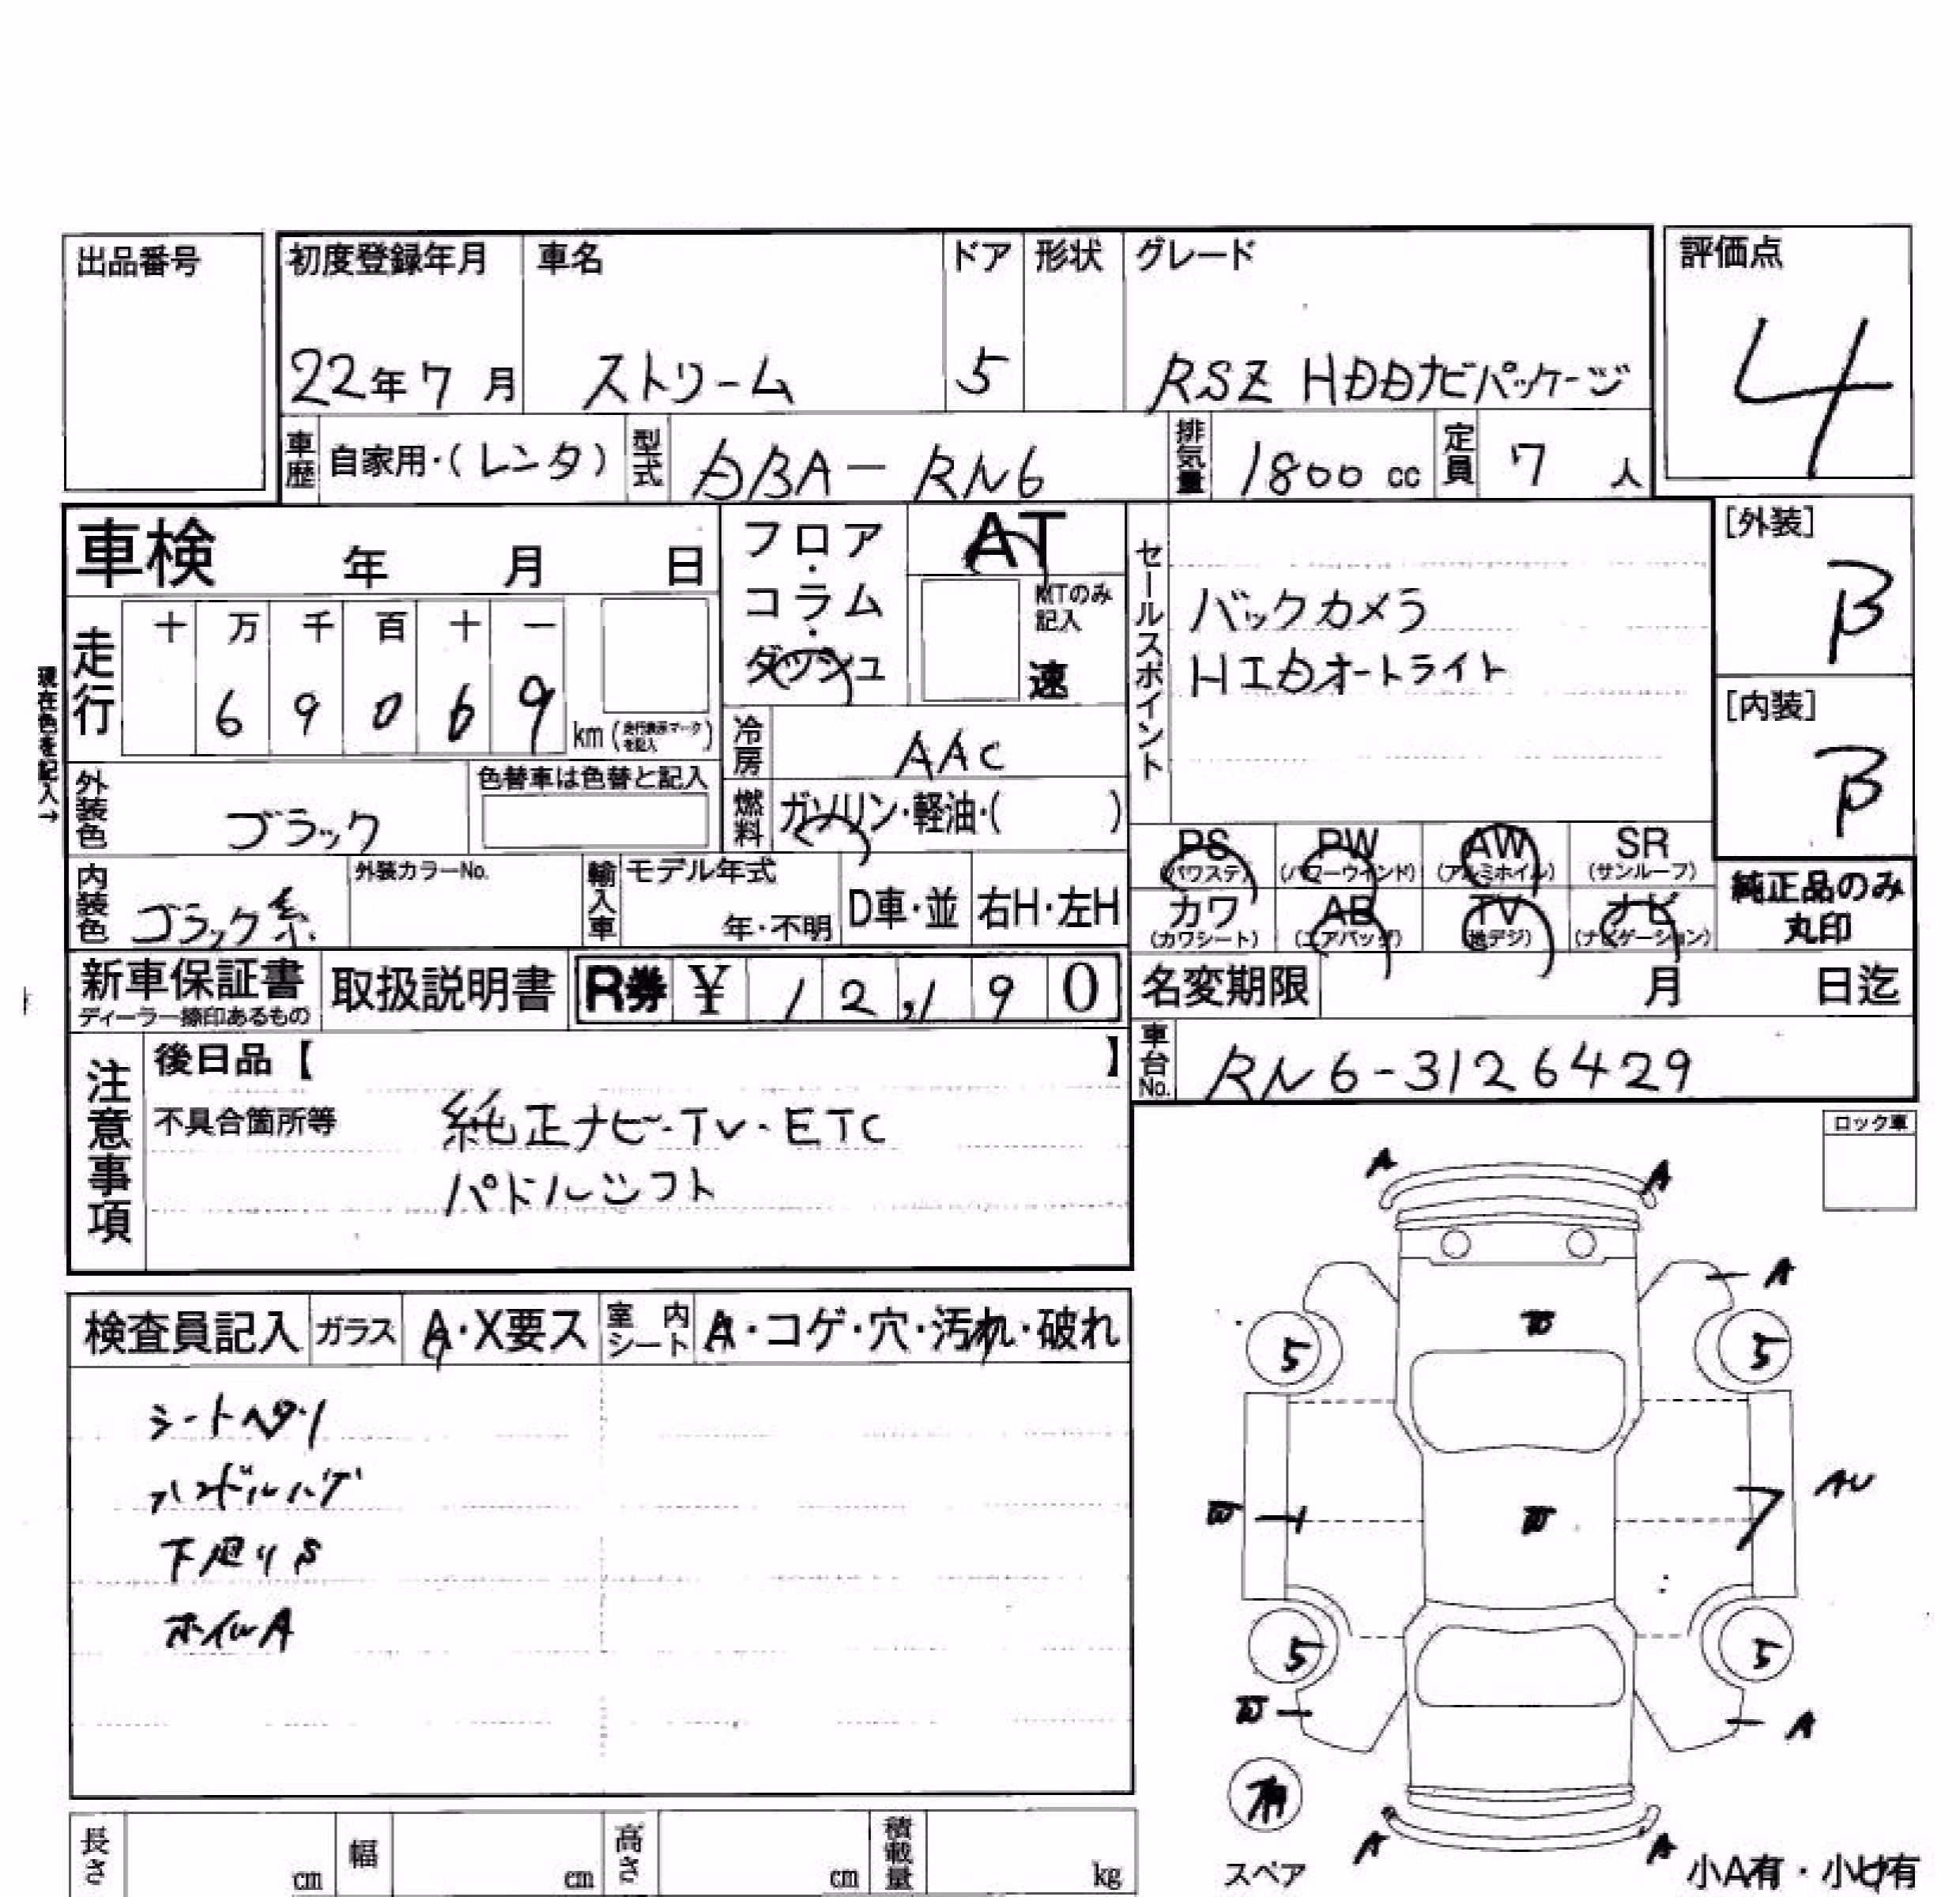 出品番号
初度登録年月 車名 ドア 形状 グレード 評価点
22年7月 ストリーム 5 RSZ HDDナビパッケージ 4
車歴 自家用・(レンタ) 型式 DBA-RN6 排気量 1800cc 定員 7人
車検 年 月 日
フロア・コラム・ダッシュ
AT
MTのみ記入
速
セールスポイント
バックカメラ
HIDオートライト
[外装] B
[内装] B
現在色を記入→
走行 十 万 千 百 十 一
6 9 0 6 9 km (走行表示マークを記入)
冷房 AAC
外装色 ブラック 色替車は色替と記入
燃料 ガソリン・軽油・( )
PS (パワステ) PW (パワーウインド) AW (アルミホイル) SR (サンルーフ)
カワ (カワシート) AB (エアバッグ) TV (地デジ) ナビ (ナビゲーション)
純正品のみ丸印
内装色 ブラック系 外装カラーNo. 輸入車 モデル年式 年・不明 D車・並 右H・左H
新車保証書 ディーラー捺印あるもの 取扱説明書 R券 ¥ 12,190
名変期限 月 日迄
車台No. RN6-3126429
注意事項 後日品【 】
不具合箇所等 純正ナビ・TV・ETC
パドルシフト
ロック車
検査員記入 ガラス A・X要ス 室内シート A・コゲ・穴・汚れ・破れ
シートヘタリ
ハンドルハゲ
下廻りS
ホイルA
A A
A
W
5 5
W W AU
5 5
W A
有
スペア
A A
小A有・小U有
長さ cm 幅 cm 高さ cm 積載量 kg